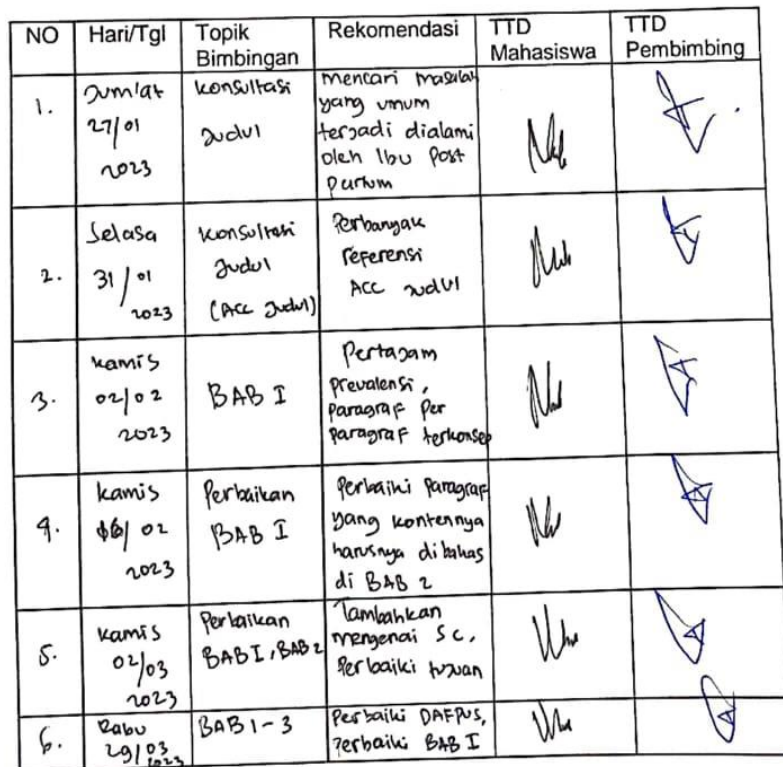 NO Hari/Tgl Topik Bimbingan Rekomendasi TTD Mahasiswa TTD Pembimbing
1. Jum'at 27/01 2023 konsultasi Judul mencari masalah yang umum terjadi dialami oleh Ibu Post partum
2. Selasa 31/01 2023 konsultasi Judul (ACC Judul) Perbanyak referensi ACC Judul
3. kamis 02/02 2023 BAB I Pertajam Prevalensi, Paragraf Per Paragraf terkonsep
4. kamis /02 2023 Perbaikan BAB I Perbaiki Paragraf yang kontennya harusnya dibahas di BAB 2
5. kamis 02/03 2023 Perbaikan BAB I, BAB 2 Tambahkan mengenai SC, Perbaiki tujuan
6. Rabu 29/03 2023 BAB 1-3 Perbaiki DAFPUS, Perbaiki BAB I